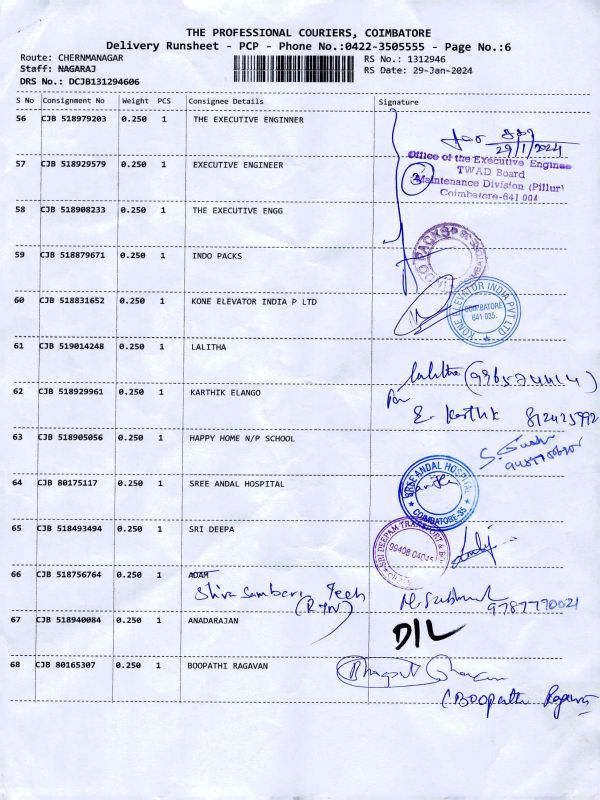 THE PROFESSIONAL COURIERS, COIMBATORE
Delivery Runsheet - PCP - Phone No.:0422-3505555 - Page No.:6
Route: CHERNMANAGAR
RS No.: 1312946
Staff: NAGARAJ
RS Date: 29-Jan-2024
DRS No.: DCJB131294606
S No Consignment No Weight PCS Consignee Details Signature
56 CJB 518979203 0.250 1 THE EXECUTIVE ENGINNER
29/1/2024
57 CJB 518929579 0.250 1 EXECUTIVE ENGINEER
Office of the Executive Enginee
TWAD Board
Maintenance Division (Pillur)
Coimbatore-641 004
3
58 CJB 518908233 0.250 1 THE EXECUTIVE ENGG
59 CJB 518879671 0.250 1 INDO PACKS
60 CJB 518831652 0.250 1 KONE ELEVATOR INDIA P LTD
KONE ELEVATOR INDIA PVT LTD
COIMBATORE
641 035.
61 CJB 519014248 0.250 1 LALITHA
Lalitha
62 CJB 518929961 0.250 1 KARTHIK ELANGO
E. Karthik
63 CJB 518905056 0.250 1 HAPPY HOME N/P SCHOOL
64 CJB 80175117 0.250 1 SREE ANDAL HOSPITAL
SREE ANDAL HOSPITAL
COIMBATORE-35
65 CJB 518493494 0.250 1 SRI DEEPA
SRI DEEPAM TRANSPORT &
66 CJB 518756764 0.250 1 ADAM
Tech
9787770021
67 CJB 518940084 0.250 1 ANADARAJAN
D/L
68 CJB 80165307 0.250 1 BOOPATHI RAGAVAN